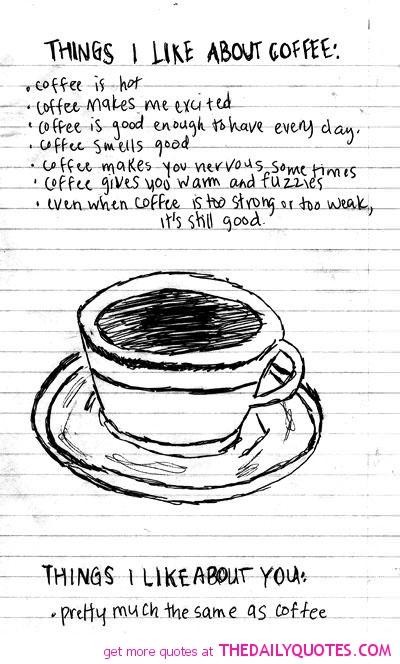 THINGS I LIKE ABOUT COFFEE:
• coffee is hot
• coffee makes me excited
• coffee is good enough to have every day.
• coffee smells good
• coffee makes you nervous sometimes
• coffee gives you warm and fuzzies
• even when coffee is too strong or too weak,
it's still good.
THINGS I LIKE ABOUT YOU:
• pretty much the same as coffee
get more quotes at THEDAILYQUOTES.COM